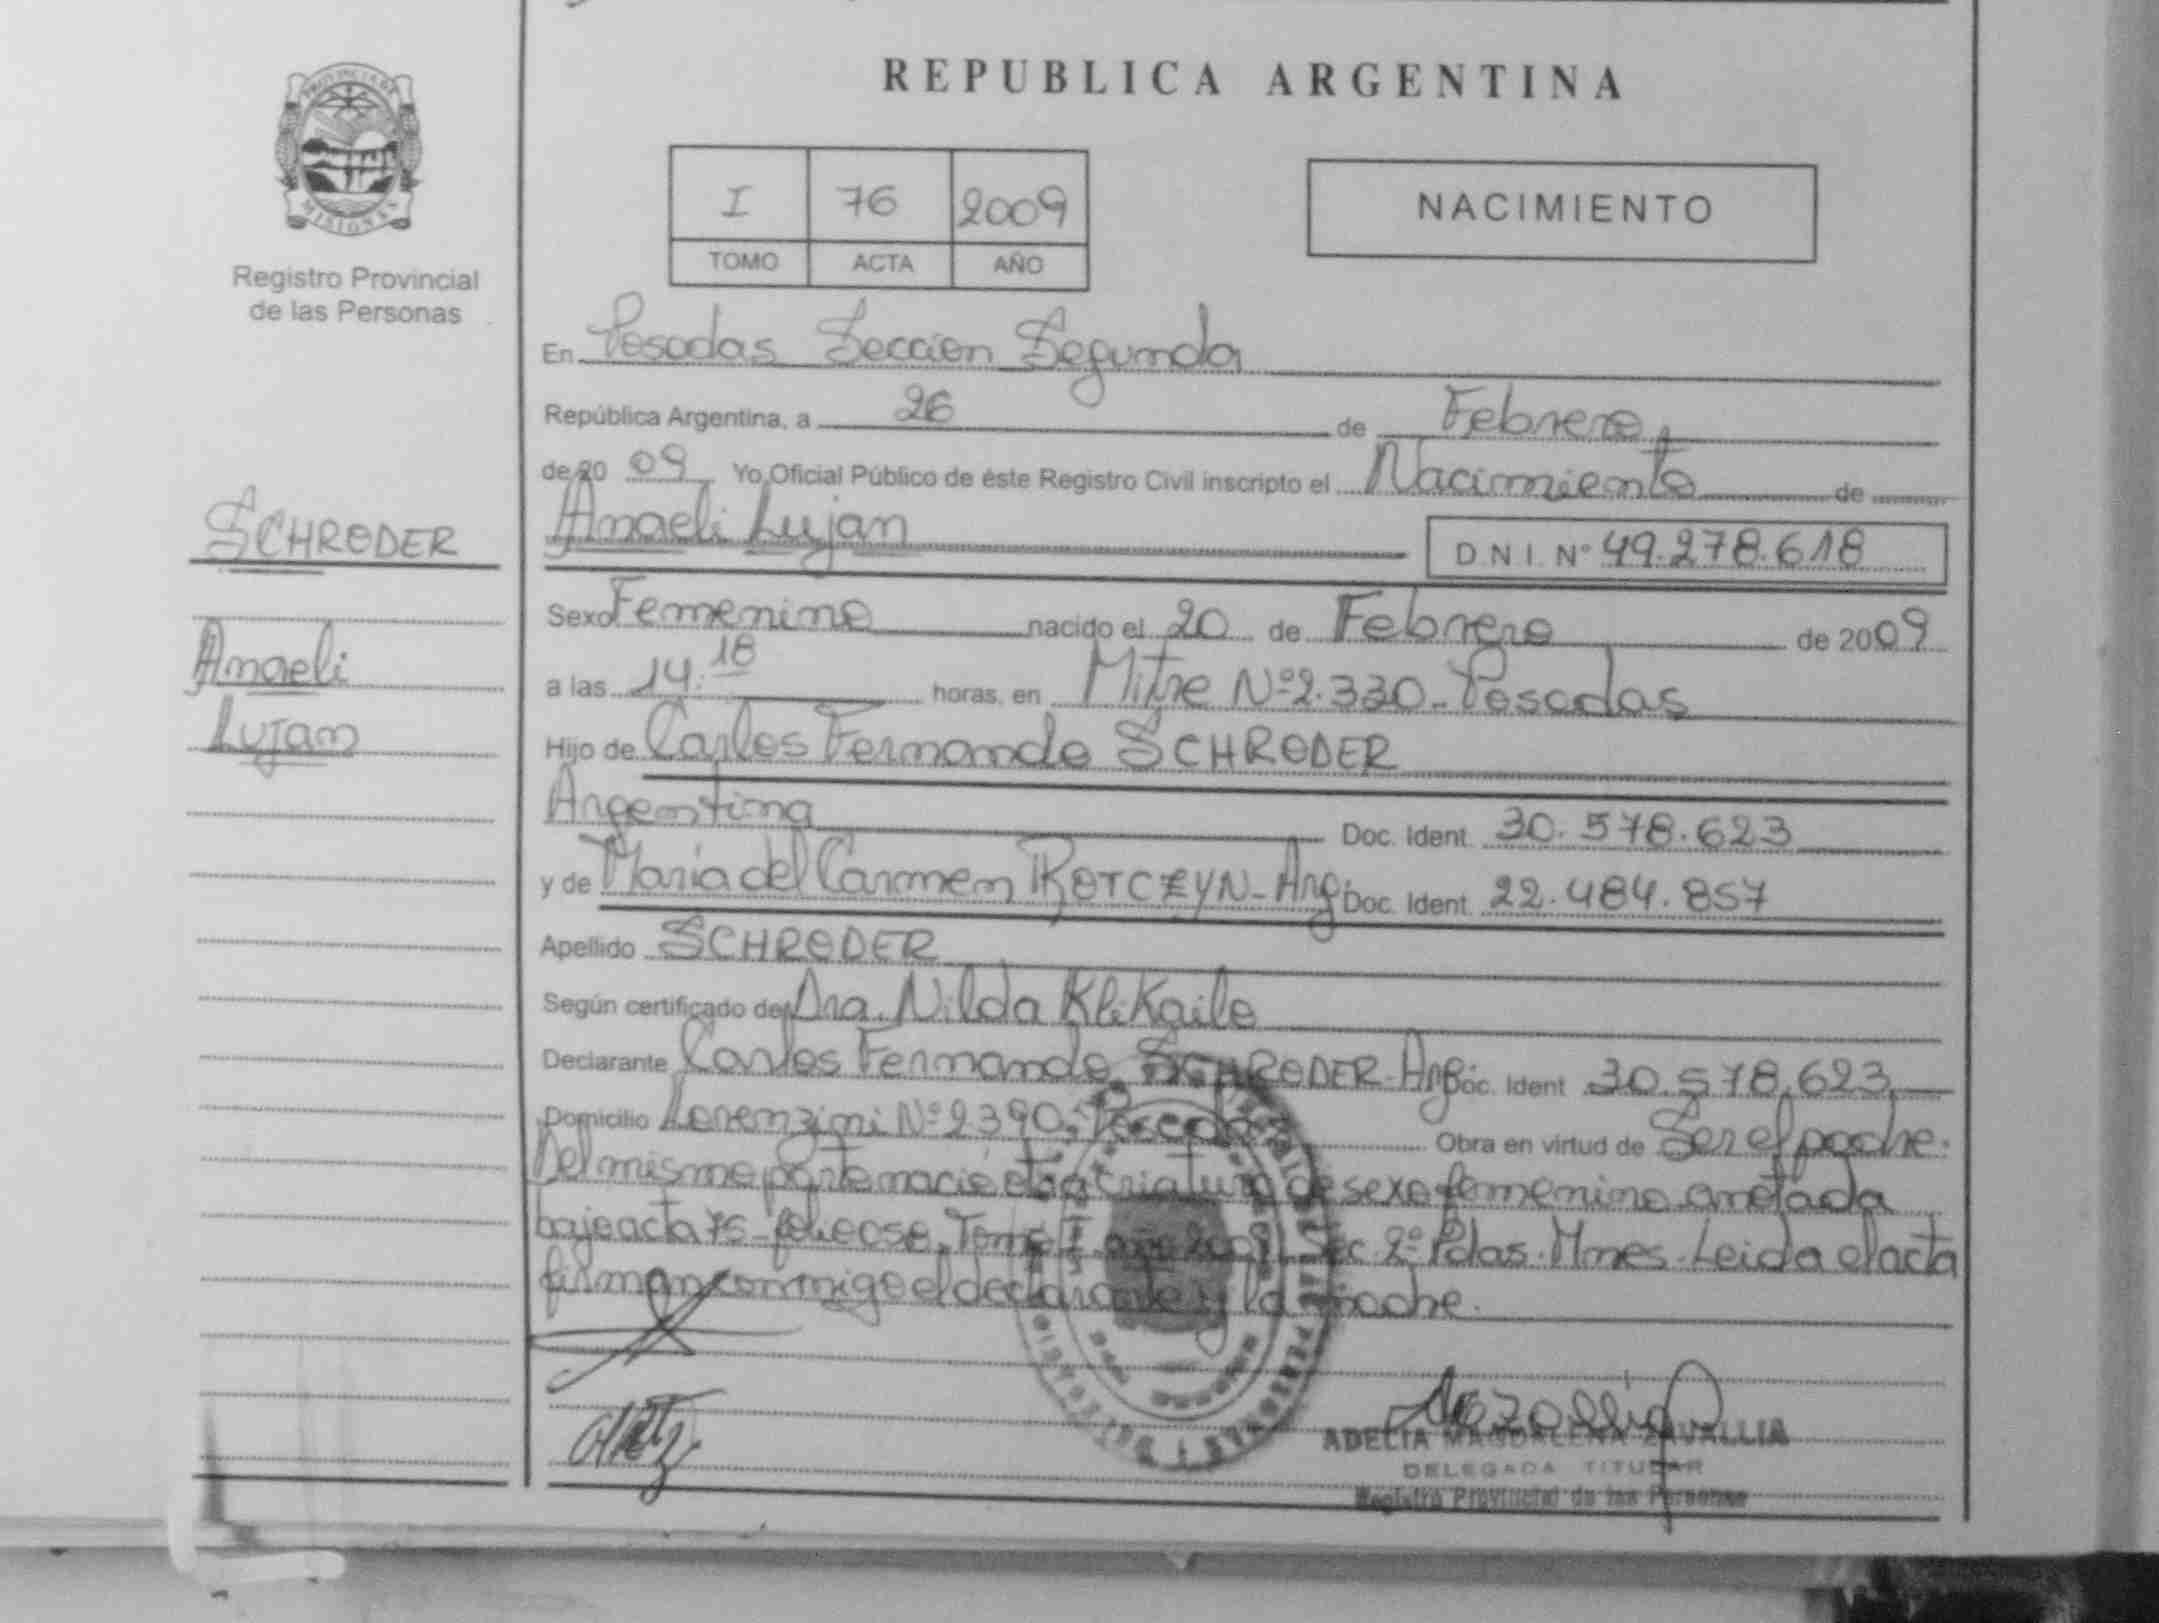 REPUBLICA ARGENTINA
PROVINCIA DE
MISIONES
Registro Provincial
de las Personas
I 76 2009
TOMO ACTA AÑO
NACIMIENTO
En Posadas Sección Segunda
República Argentina, a 26 de Febrero
de 20 09 Yo Oficial Público de éste Registro Civil inscripto el Nacimiento de
SCHRODER
Anaeli Lujan D.N.I. Nº 49.278.618
Sexo Femenino nacido el 20 de Febrero de 2009
Anaeli
Lujan
a las 14:18 horas, en Mitre Nº 2.330-Posadas
Hijo de Carlos Fernando SCHRODER
Argentina Doc. Ident. 30.578.623
y de María del Carmen Arg. Doc. Ident. 22.484.857
Apellido SCHRODER
Según certificado de Dra. Nilda
Declarante Carlos Fernando SCHRODER-Arg Doc. Ident 30.578.623
Domicilio Lorenzini Nº 2390, Posadas Obra en virtud de Ser el padre.
Del mismo parto nació otra criatura de sexo femenino anotada
bajo acta 75- Tomo I año 2009 Sec. 2º Pdas. Mnes. Leida el acta
firman conmigo el declarante y la madre.
ADELIA MAGDALENA ZAVALLIA
DELEGADA TITULAR
Registro Provincial de las Personas